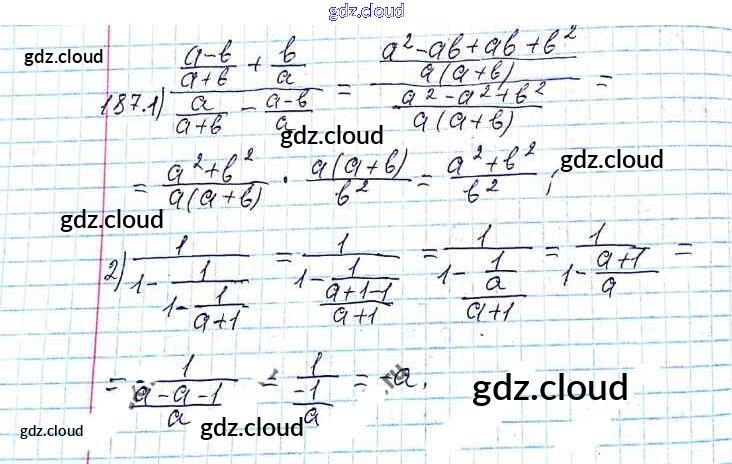 gdz.cloud
gdz.cloud
187.1) ((a-b)/(a+b) + b/a)/(a/(a+b) - (a-b)/a) = ((a²-ab+ab+b²)/(a(a+b)))/((a²-a²+b²)/(a(a+b))) =
gdz.cloud
= (a²+b²)/(a(a+b)) · (a(a+b))/b² = (a²+b²)/b² ;
gdz.cloud
gdz.cloud
2) 1/(1-1/(1-1/(a+1))) = 1/(1-1/((a+1-1)/(a+1))) = 1/(1-1/(a/(a+1))) = 1/(1-(a+1)/a) =
= 1/((a-a-1)/a) = 1/(-1/a) = -a.
gdz.cloud
gdz.cloud
gdz.cloud